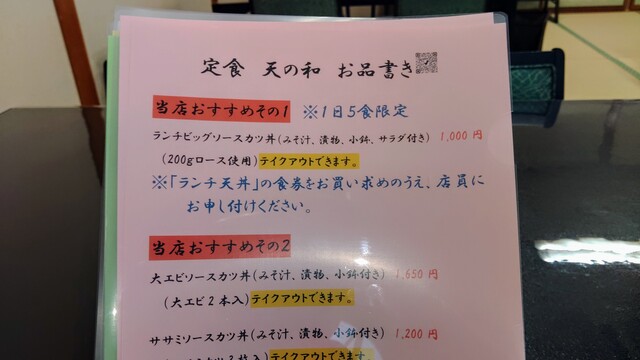 定食 天の和 お品書き
当店おすすめその1 ※1日5食限定
ランチビッグソースカツ丼(みそ汁、漬物、小鉢、サラダ付き) 1,000 円
(200gロース使用)テイクアウトできます。
※「ランチ天丼」の食券をお買い求めのうえ、店員に
お申し付けください。
当店おすすめその2
大エビソースカツ丼(みそ汁、漬物、小鉢付き) 1,650 円
(大エビ2本入)テイクアウトできます。
ササミソースカツ丼(みそ汁、漬物、小鉢付き) 1,200 円
テイクアウトできます。